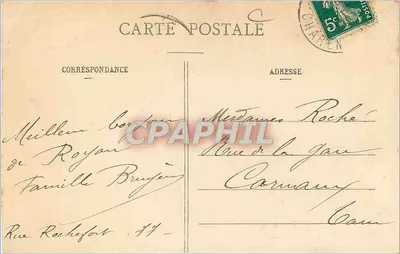 CARTE POSTALE
5c
POSTES
CHAREN
CORRESPONDANCE
ADRESSE
Meilleur bonjour
de Royan
Famille Bruyère
Rue Rochefort 77
Mesdames Roché
Rue de la gare
Carmaux
Tarn
CPAPHIL